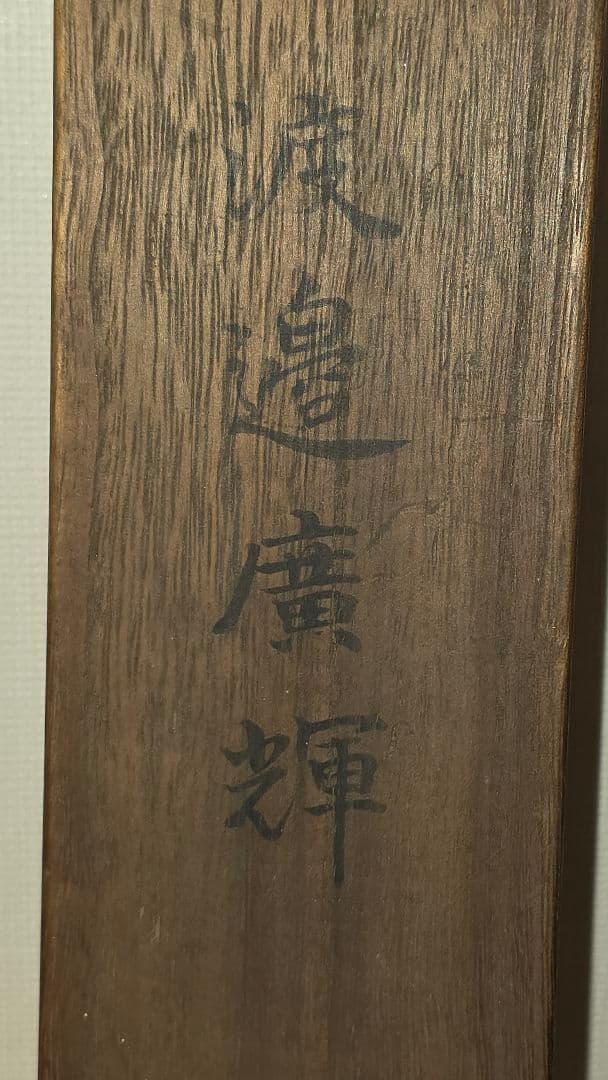 渡邉廣輝